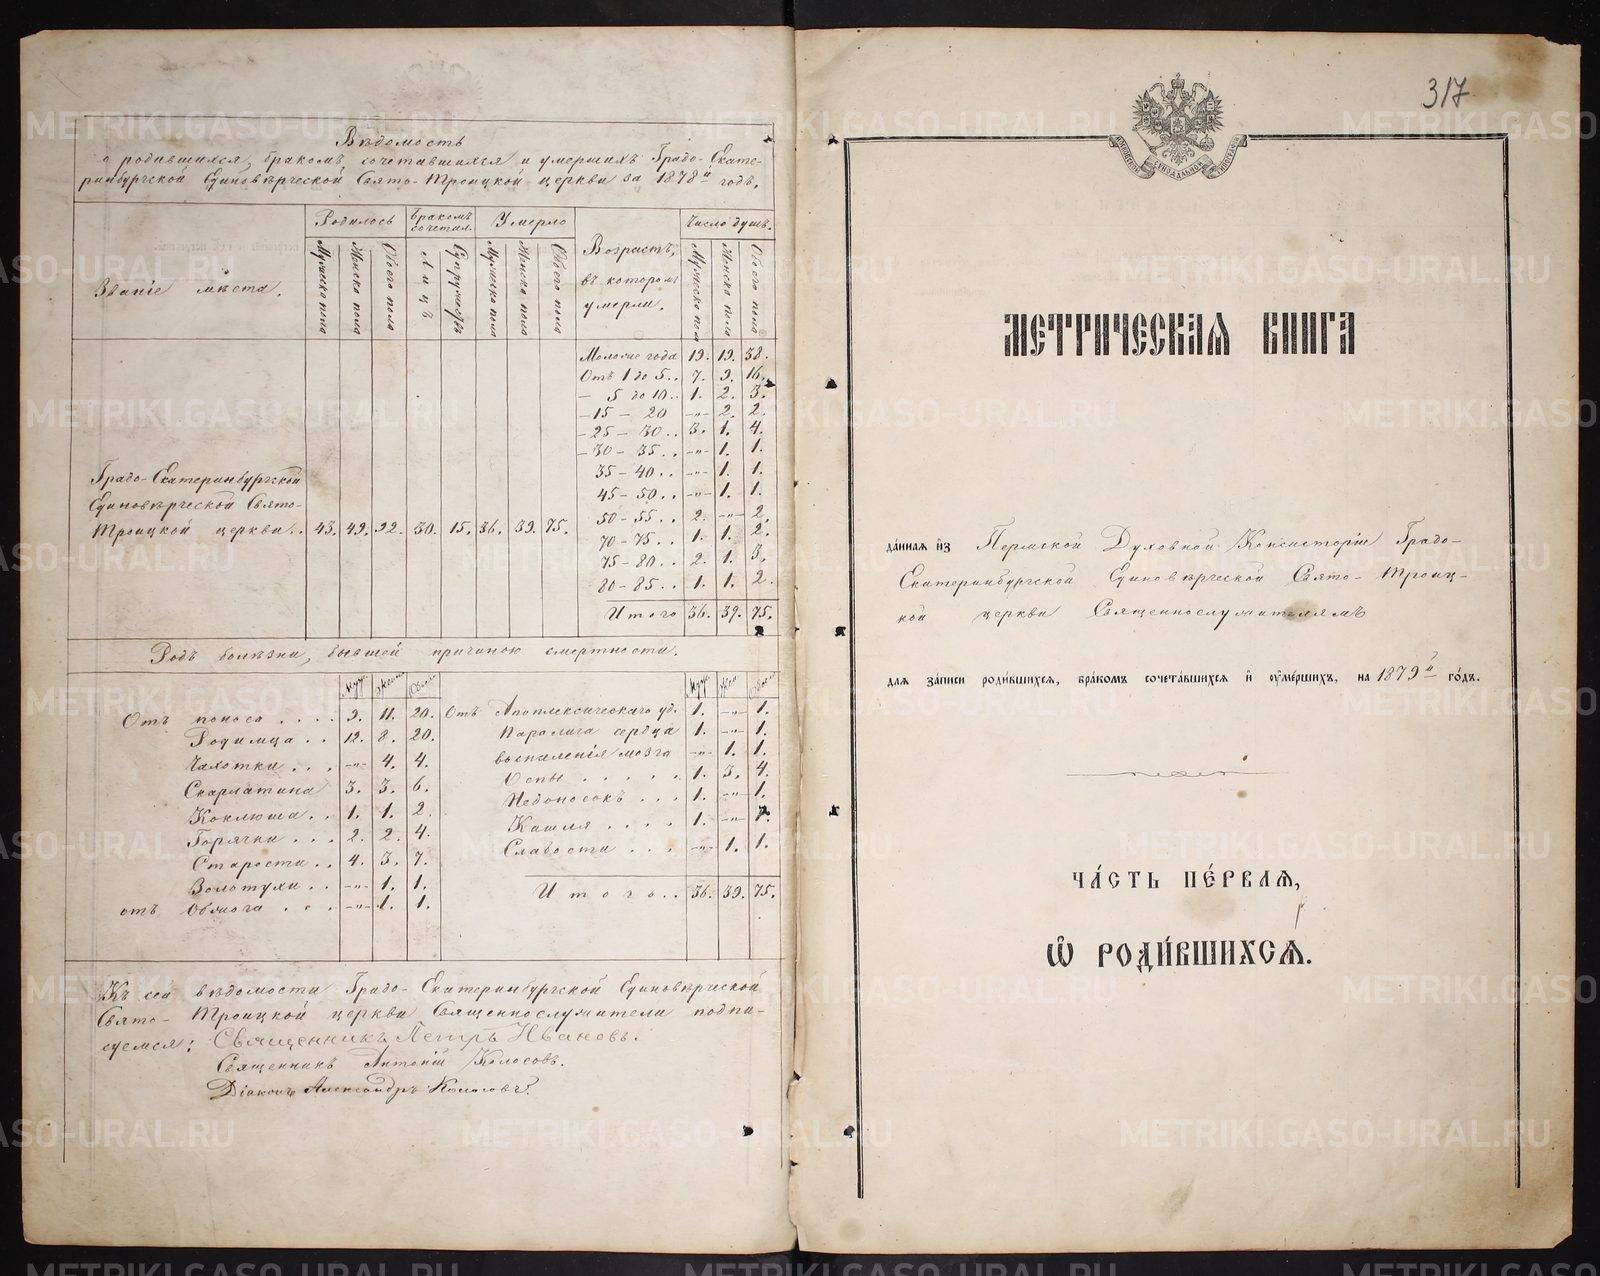 Вѣдомость
о родившихся, бракомъ сочетавшихся и умершихъ Градо-Екате-
ринбургской Единовѣрческой Свято-Троицкой церкви за 1878й годъ.
Званіе мѣста.
Родилось
Бракомъ сочетал.
Умерло
Возрастъ, въ которомъ умерли.
Число душъ.
Мужеска пола
Женска пола
Обоего пола
Лицъ
Супружествъ
Мужеска пола
Женска пола
Обоего пола
Мужеска пола
Женска пола
Обоего пола
Градо-Екатеринбургской
Единовѣрческой Свято-
Троицкой церкви.. 43. 49. 92. 30. 15. 36. 39. 75.
Молочие года 19. 19. 38.
Отъ 1 до 5.. 7. 9. 16.
— 5 до 10.. 1. 2. 3.
— 15 — 20 -„- 2. 2.
— 25 — 30.. 3. 1. 4.
— 30 — 35.. -„- 1. 1.
35 — 40.. -„- 1. 1.
45 — 50.. -„- 1. 1.
50 — 55.. 2. -„- 2.
70 — 75.. 1. 1. 2.
75 — 80.. 2. 1. 3.
80 — 85.. 1. 1. 2.
Итого 36. 39. 75.
Родъ болѣзни, бывшей причиною смертности.
Отъ поноса.... 9. 11. 20.
Родимца.. 12. 8. 20.
Чахотки... -„- 4. 4.
Скарлатина 3. 3. 6.
Коклюша.. 1. 1. 2.
Горячки... 2. 2. 4.
Старости.. 4. 3. 7.
Золотухи.. -„- 1. 1.
отъ Обжога... -„- 1. 1.
Отъ Апоплексическаго уд. 1. -„- 1.
Паралича сердца 1. -„- 1.
воспаленія мозга -„- 1. 1.
Оспы..... 1. 3. 4.
Недоносокъ... 1. -„- 1.
Кашля.... 1. -„- 1.
Слабости... -„- 1. 1.
Итого.. 36. 39. 75.
Къ сей вѣдомости Градо-Екатеринбургской Единовѣрческой
Свято-Троицкой церкви Священнослужители подпи-
суемся: Священникъ Петръ Ивановъ.
Священникъ Антоній Колосовъ.
Діаконъ Александръ Колосовъ.
317
МОСКОВСКОЙ СѴНОДАЛЬНОЙ ТИПОГРАФІИ
МЕТРИЧЕСКАЯ КНИГА
да́нная и҆з̾ Пермской Духовной Консисторіи Градо-
Екатеринбургской Единовѣрческой Свято-Троиц-
кой церкви Священнослужителямъ
для за́писи роди́вшихся, бра́комъ сочета́вшихся и҆ ᲂу҆ме́ршихъ, на 1879й го́дъ.
ЧА́СТЬ ПЕ́РВАЯ,
Ѡ҆ РОДИ́ВШИХСЯ.
METRIKI.GASO-URAL.RU